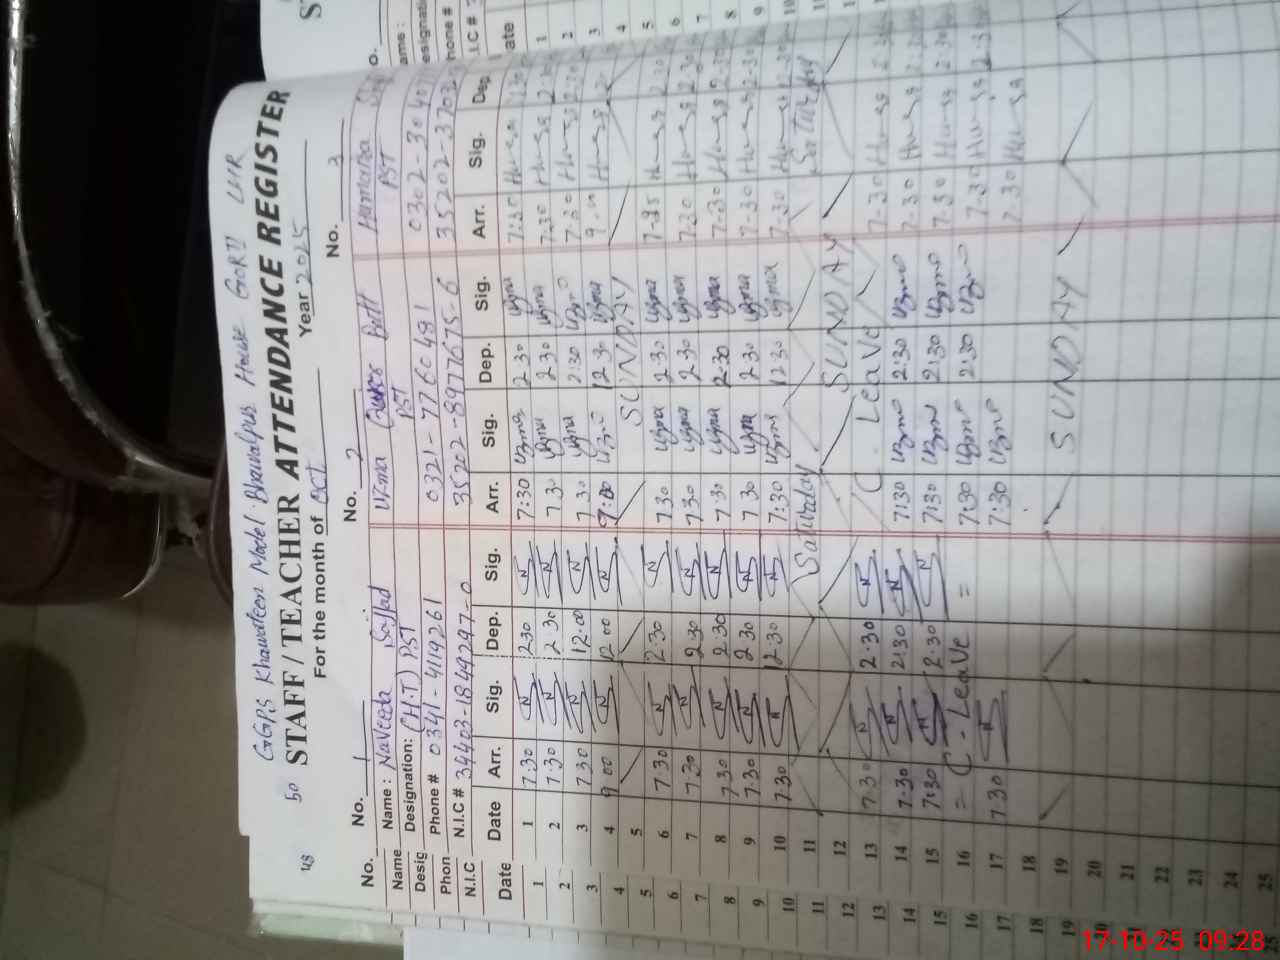 48 50 GGPS Khawateen Model Bhawalpur House GORII LHR
STAFF / TEACHER ATTENDANCE REGISTER
For the month of OCT Year 2025
No. 1 No. 2 No. 3
Name: Naveeda Sajjad Uzma Butt Humaira
Designation: (H.T) PST PST PST
Phone # 0341-4119261 0321-7760481 0302-30
N.I.C # 34403-1849297-0 35202-8977675-6 35202-3703
Date Arr. Sig. Dep. Sig. Arr. Sig. Dep. Sig. Arr. Sig. Dep.
1 7.30 N 2.30 N 7:30 uzma 2.30 uzma 7:30 Huma 2.30
2 7.30 N 2.30 N 7.30 uzma 2.30 uzma 7.30 Huma
3 7.30 N 12.00 N 7.30 uzma 2:30 uzma 7.30 Huma 2.30
4 9.00 N 12.00 N 9:00 uzma 12.30 uzma 9.00 Huma
5 SUNDAY
6 7.30 N 2.30 N 7.30 uzma 2.30 uzma Huma 2.30
7 7.30 N 2.30 N 7.30 uzma 2.30 uzma 7.30 Huma 2.30
8 7.30 N 2.30 N 7.30 uzma 2.30 uzma 7.30 Huma 2.30
9 7.30 N 2.30 N 7.30 uzma 2.30 uzma 7.30 Huma 2.30
10 7.30 N 12.30 N 7:30 uzma 12.30 uzma 7.30 Huma 12.30
11 Saturday Saturday
12 SUNDAY
13 7.30 N 2.30 N C. Leave 7.30 Huma 2.30
14 7.30 N 2.30 N 7:30 uzma 2:30 uzma 7.30 Huma 2.30
15 7:30 N 2.30 N 7:30 uzma 2:30 uzma 7.30 Huma 2.30
16 = C - Leave = 7:30 uzma 2:30 uzma 7.30 Huma 2.30
17 7.30 N 7:30 uzma 7.30 Huma
18
19 SUNDAY
20
21
22
23
24
25
No.
Name
Desig
Phon
N.I.C
Date
1
2
3
4
5
6
7
8
9
10
11
12
13
14
15
16
17
18
19
20
17-10-25 09:28